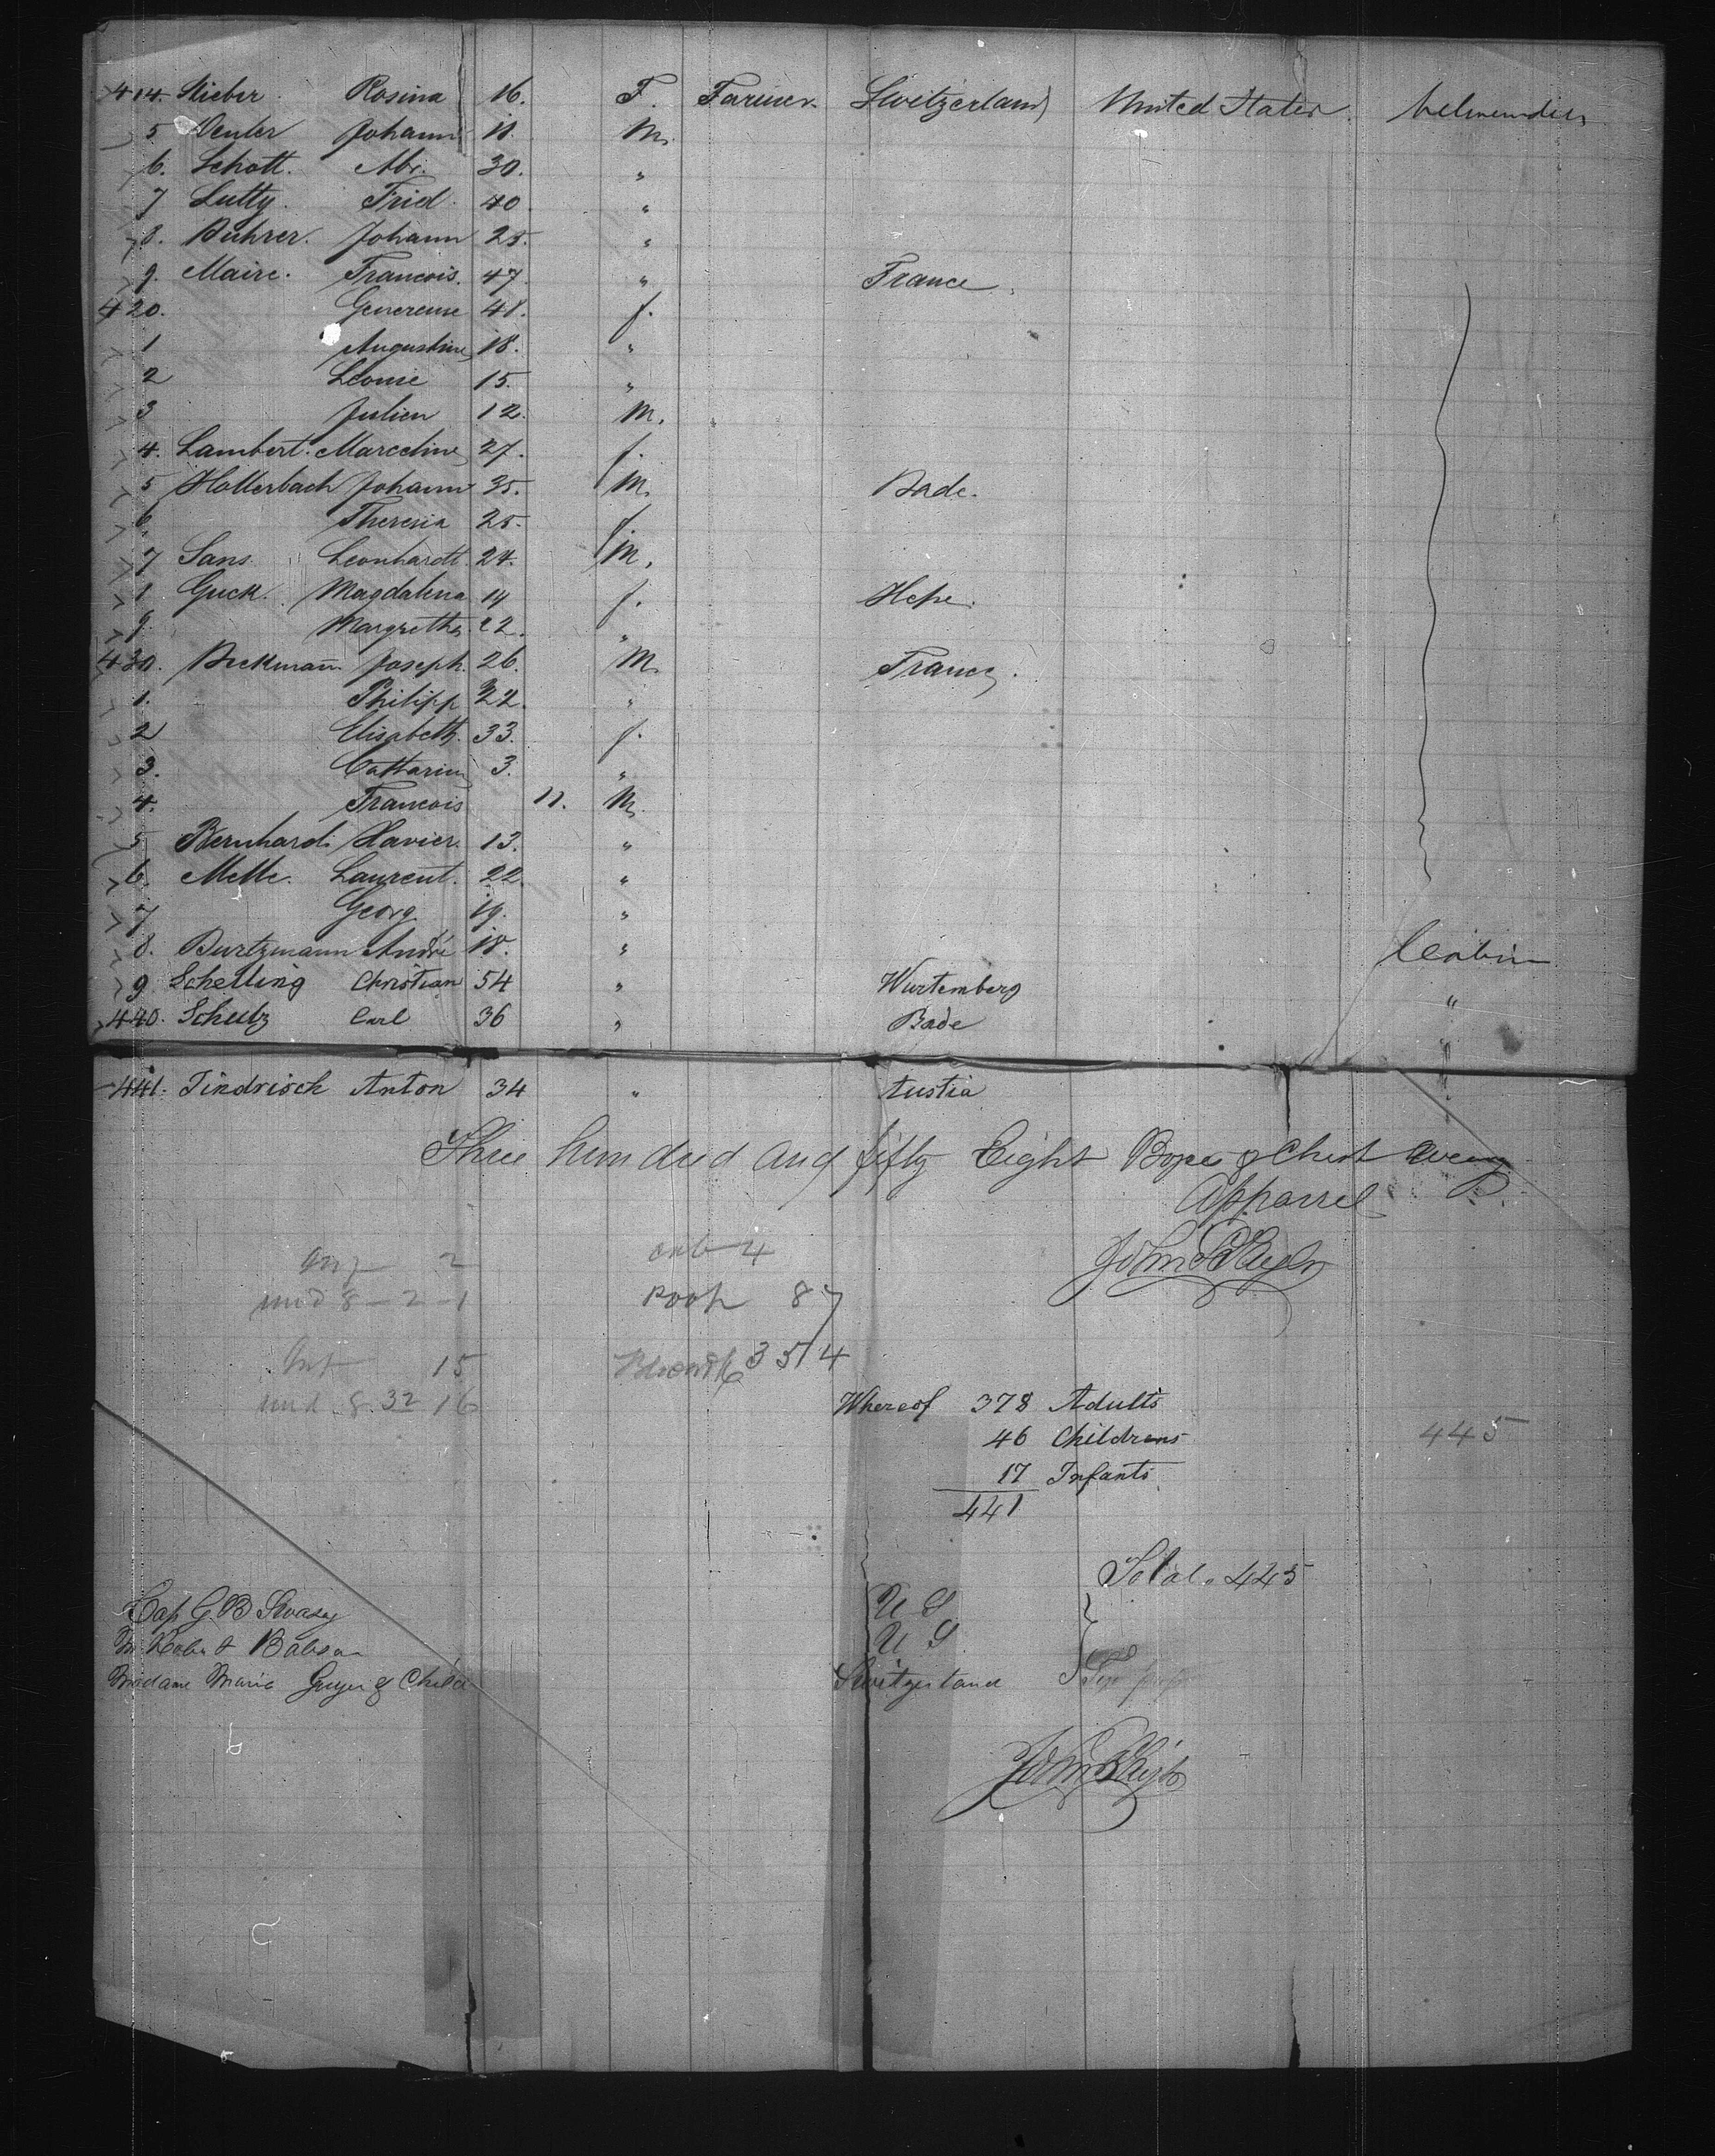 414. Stieber. Rosina 16. F. Farmer. Switzerland United States.
5 Johann 18. M.
6. Schott. Abr. 30. "
7 Lutty. Frid. 40. "
8. Buhrer. Johann 25. "
9. Maire. Francois. 47. " France.
420. Genereuse 48. f.
1 Augustine 18. "
2 Leonie 15. "
3 Julien 12. M.
4. Lambert. Marceline 27. f.
5 Hollerbach Johann 35. M. Bade.
6. Theresia 25. f.
7 Sans. Leonhardt. 24. M.
8 Guck. Magdalena 19 f.
9. Margretha. 22. "
430. Beckmann Joseph. 26. M. France.
1. Philipp 22. "
2 Elisabeth. 33. f.
3. 3. "
4. Francois 11. M.
5 Bernhard. Xavier. 13. "
6. Mette. Laurent. 22. "
7 Georg. 19. "
8. Burtzmann André 18. "
9 Schelling Christian 54 " Wurtemberg "
440. Schulz Carl 36 " Bade "
441. Jindrisch Anton 34 " Austia "
Three hundred and fifty Eight Boxes & Chest
Apparrel
2
und 8 - 2 - 1 Poop 87
15 354
und 8. 32 16
Whereof 378 Adults
46 Childrens 445
17 Infants
441
Total. 445
Cap G B Swasey U S
M Robert Babson U S
Madame Maria Guyer & Child Switzerland